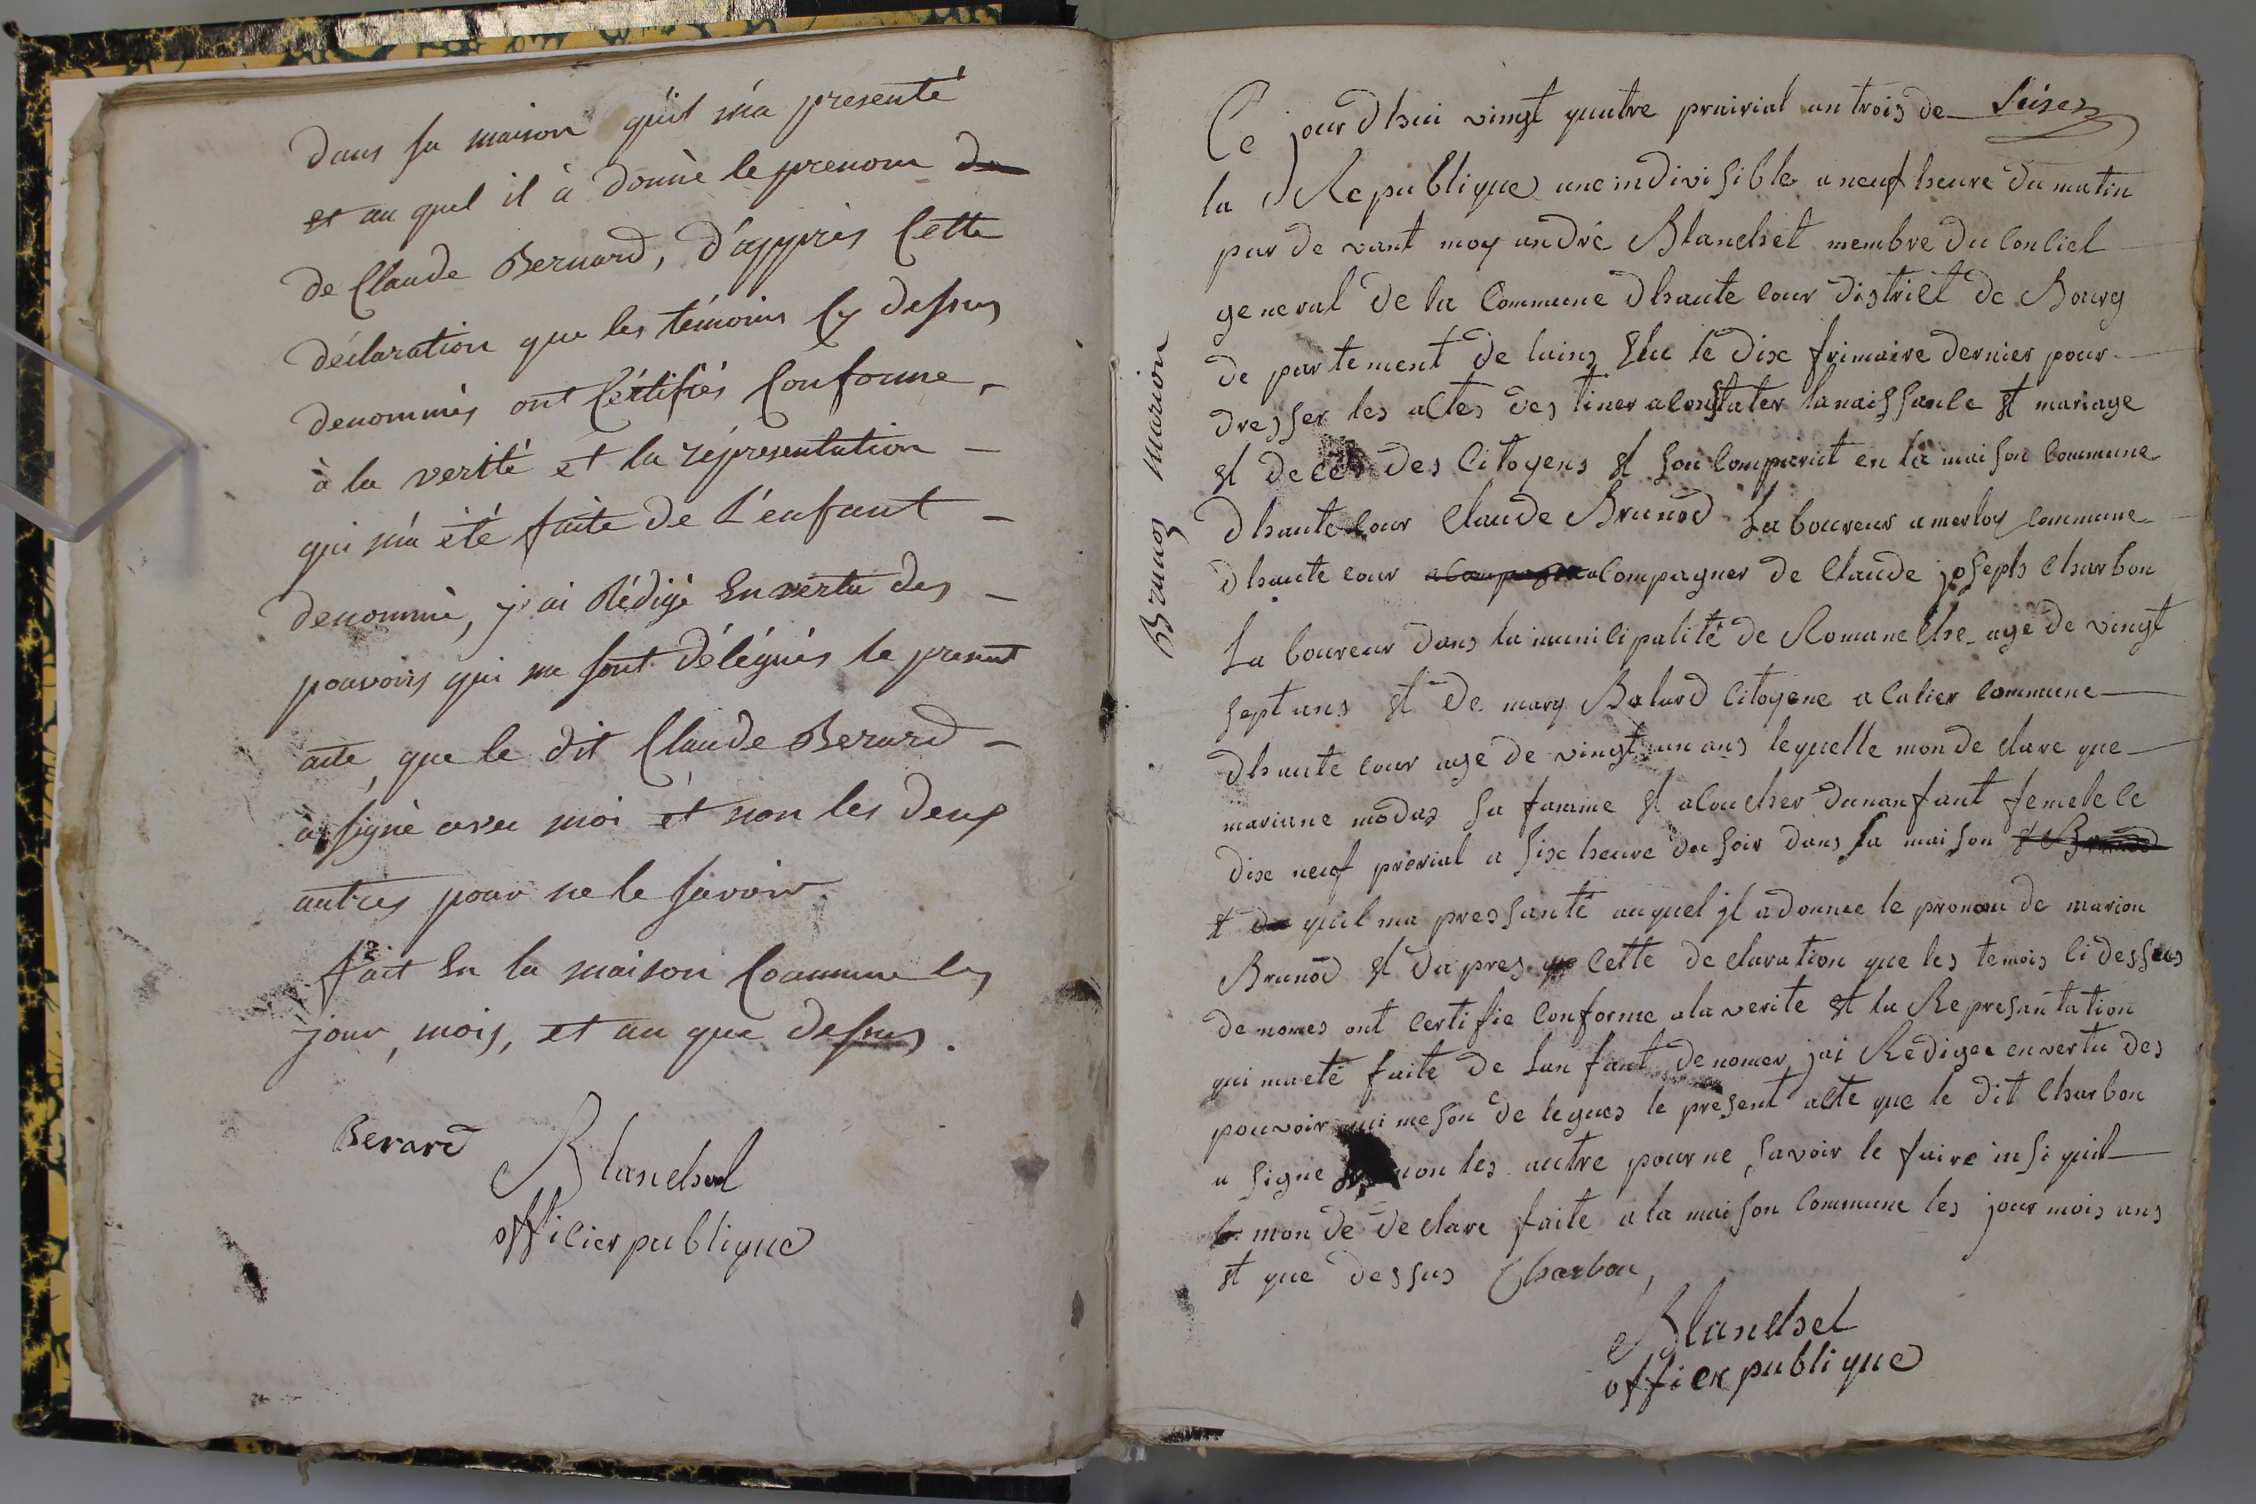 dans sa maison qu'il m'a presenté
et au quel il à donnè le prenom de
de Claude Bernard, d'apprès Cette
déclaration que les témoins Cy dessus
denommés ont Cértifiés Conforme,
à la verité et la réprésentation
qui m'a été faite de L'enfant
denommè, j'ai Rédigé En vertu des
pouvoirs qui me sont délégués le present
acte, que le dit Claude Berard
à signè avec moi et non les deux
autres pour ne le savoir
fait En la maison Commune les
jour, mois, et an que dessus.
Berard
Blanchet
officier publique
Seise
Ce jour dhui vingt quatre prairial an trois de
la Republique une indivisible a neuf heure du matin
par de vant moy andré Blanchet membre du Conciel
general de la Commune dhaute cour district de Bourg
de partement de lains Elu le dix frimaire dernier pour
dresser les actes des tiner a constater la naissance et mariage
et deces des Citoyens et son comparut en la maison commune
dhaute cour Claude Brunod Laboureur a merloy commune
dhaute cour acompagner de Claude joseph Charbon
La boureur dans la municipalité de Romaneche age de vingt
sept ans et de mary Balard Citoyene a Calier commune
dhaute cour age de vingt un ans lequelle mon de clare que
mariane modas sa famme et acoucher dunanfant femele le
dix neuf prérial a six heure du soir dans sa maison
et quil ma pressanté auquel jl a donnee le pronom de marion
Brunod et dapres cette de claration que les temois ci dessus
de nomes ont certifie conforme a la verite et la Represantation
qui ma eté faite de Lanfant de nomer jai Rediger en vertu des
pouvoir qui me son de legues le présent acte que le dit Charbon
a signe non les autre pour ne savoir le faire insi quil
mon de declare faite a la maison commune les jour mois ans
et que dessus Charbon,
Blanchet
officier publique
Brunoz Marion